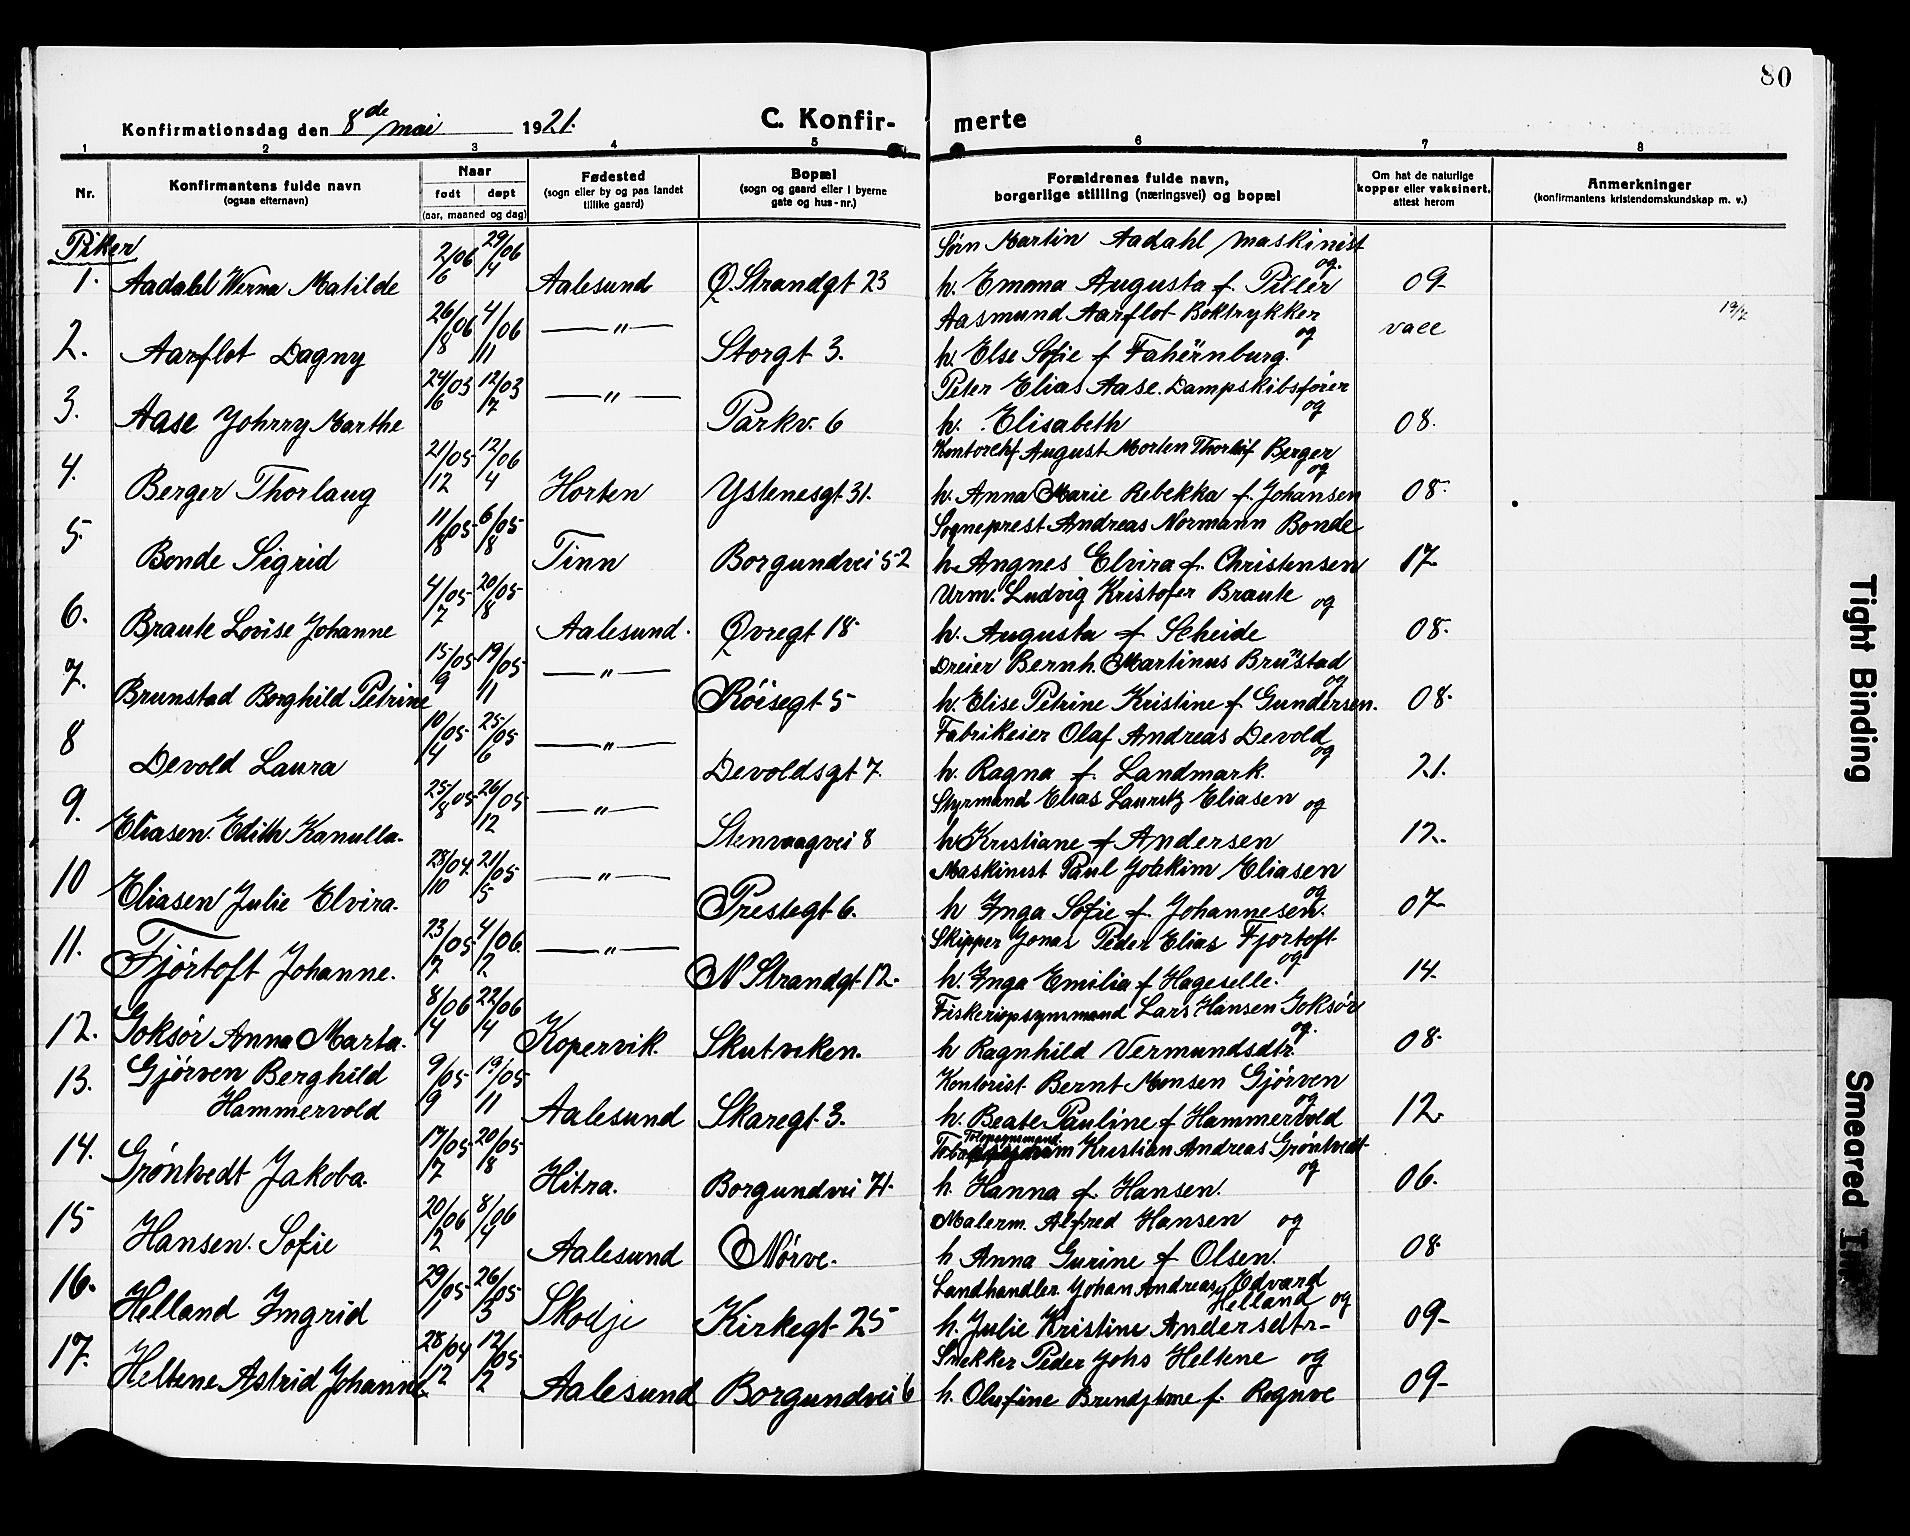 80
Konfirmationsdag den 8de mai 1921.
C. Konfir-
merte
1 2 3 4 5 6 7 8
Nr.
Konfirmantens fulde navn
(ogsaa efternavn)
Naar
født døpt
(aar, maaned og dag)
Fødested
(sogn eller by og paa landet
tillike gaard)
Bopæl
(sogn og gaard eller i byerne
gate og hus-nr.)
Forældrenes fulde navn,
borgerlige stilling (næringsvei) og bopæl
Om hat de naturlige
kopper eller vaksinert,
attest herom
Anmerkninger
(konfirmantens kristendomskundskap m. v.)
Piker
Sørn Martin Aadahl maskinist
og
1. Aadahl Werna Matilde 2/6 06 29/4 06 Aalesund Ø. Strandgt 23 h. Emma Augusta f. Piller 09
Aasmund Aarflot Boktrykker
og
2. Aarflot Dagny 26/8 06 4/11 06 —"— Storgt 3. h. Else Sofie f Fahernburg. vacc 19/7
Peter Elias Aase. Dampskibsfører
og
3. Aase Johrry Marthe 24/6 03 12/7 03 —"— Parkv. 6 h. Elisabeth 08.
Kontorchf August Morten Thorleif Berger
og
4. Berger Thorlaug 21/12 05 12/4 06 Horten Ystenesgt 31. h. Anna Marie Rebekka f. Johansen 08.
Sogneprest Andreas Normann Bonde
5. Bonde Sigrid 11/8 05 6/8 05 Tinn Borgundvei 52 h. Angnes Elvira f. Christensen 17
Urm. Ludvig Kristofer Braute og
6. Braute Lovise Johanne 4/7 05 20/8 05 Aalesund. Øvregt 18 h. Augusta f Scheide 08.
Dreier Bernh. Martinus Brustad
og
7. Brunstad Borghild Petrine 15/9 05 19/11 05 —"— Røisegt 5 h. Elise Petrine Kristine f Gundersen. 08.
Fabrikeier Olaf Andreas Devold
og
8 Devold Laura 10/4 05 25/6 05 —"— Devoldsgt 7. h. Ragna f Landmark. 21.
Styrmand Elias Lauritz Eliasen og
9. Eliasen. Edith Kanulla. 25/8 05 26/12 05 —"— Stenvaagvei 8 h Kristiane f Andersen 12.
Maskinist Paul Joakim Eliasen
og
10 Eliasen Julie Elvira. 28/10 04 21/5 05 —"— Prestegt 6. h Inga Sofie f Johannesen. 07
Skipper Jonas Peder Elias Fjortoft
og
11. Fjørtoft Johanne. 23/7 05 4/2 06. —"— N Strandgt 12. h. Inga Emilia f Hageselle. 14.
Fiskeriopsynsmand Lars Hansen Goksør
og
12. Goksør Anna Marta. 8/4 06 22/4 06 Kopervik. Skutviken. h Ragnhild Vermundsdtr. 08.
Kontorist Bernt Monsen Gjørven
og
13. Gjørven Berghild
Hammervold 9/9 05 19/11 05 Aalesund Skaregt 3. h. Beate Pauline f Hammervold 12.
Tolopsynsmand
Kristian Andreas Grøntvedt
og
14. Grøntvedt Jakoba. 17/7 05 20/8 05 Hitra. Borgundvei 71. h. Hanna f Hansen. 06.
Malerm. Alfred Hansen og
15 Hansen. Sofie 20/2 06 8/4 06 Aalesund Nørve. h Anna Gurine f Olsen. 08
Landhandler Johan Andreas Edvard
Helland og
16. Helland Ingrid 29/1 05 26/3 05 Skodje Kirkegt 25 h. Julie Kristine Andersdtr 09
Snekker Peder Johs Heltene og
17. Heltene Astrid Johanne 28/12 04 12/2 05 Aalesund Borgundvei 6 h. Olufine f. Rognve 09
Tight Binding
Smeared